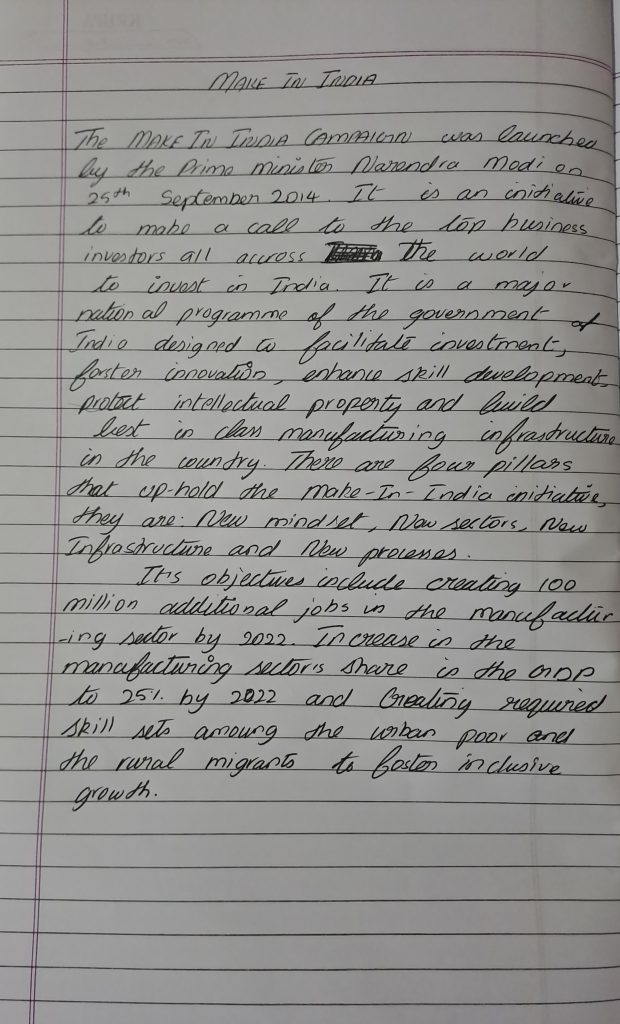 MAKE IN INDIA
The MAKE IN INDIA CAMPAIGN was launched
by the Prime minister Narendra Modi on
25th September 2014. It is an initiative
to make a call to the top business
investors all accross the world
to invest in India. It is a major
national programme of the government of
India designed to facilitate investment,
foster innovation, enhance skill development,
protect intellectual property and build
best in class manufacturing infrastructure
in the country. There are four pillars
that up-hold the make-In-India initiative,
they are: New mindset, New sectors, New
Infrastructure and New processes.
It's objectives include creating 100
million additional jobs in the manufactur
-ing sector by 2022. Increase in the
manufacturing sector's share in the GDP
to 25% by 2022 and Creating required
skill sets amoung the urban poor and
the rural migrants to foster inclusive
growth.